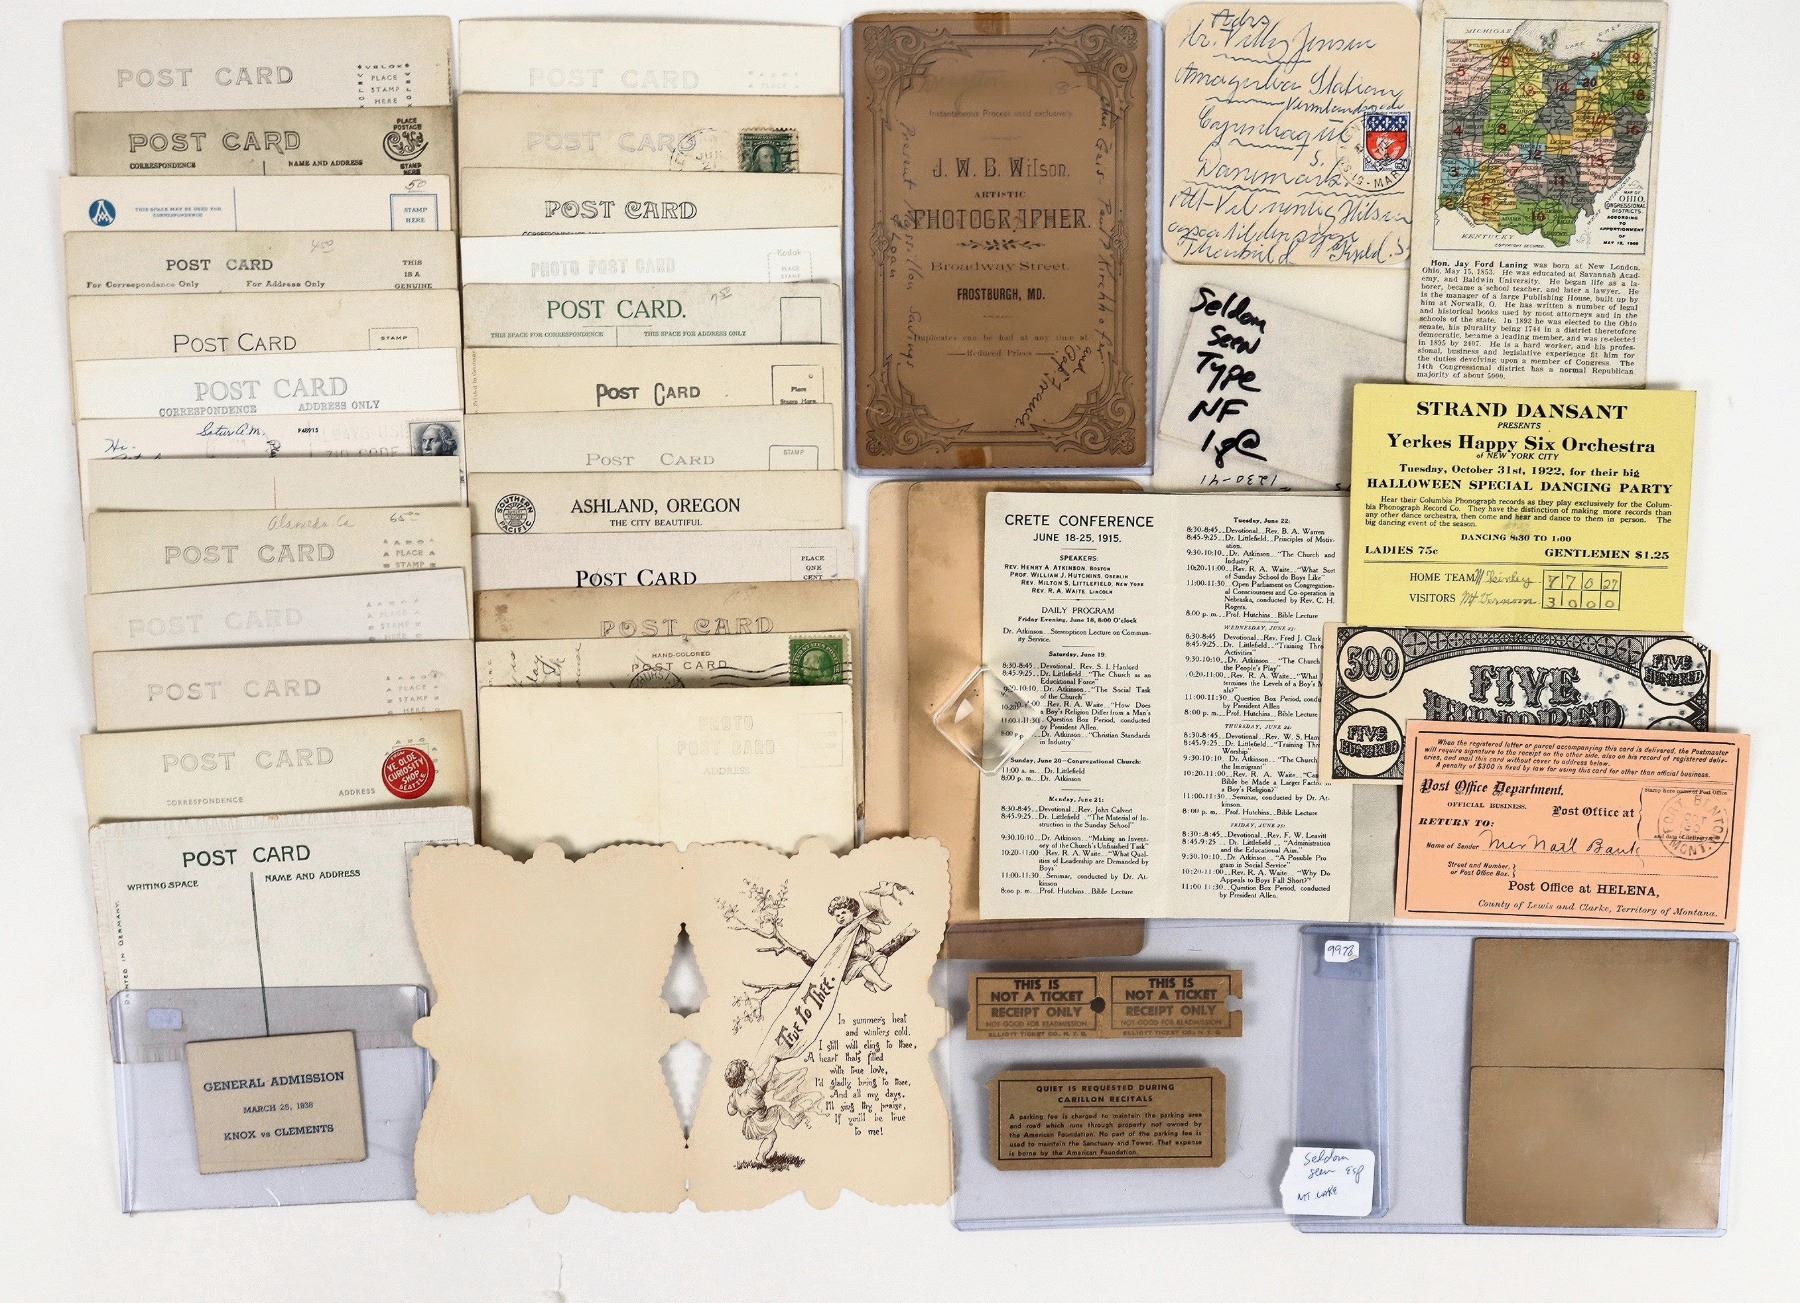 POST CARD
VELOX
PLACE
STAMP
HERE
POST CARD
CORRESPONDENCE
NAME AND ADDRESS
PLACE
POSTAGE
STAMP
HERE
THIS SPACE MAY BE USED FOR
CORRESPONDENCE
50
STAMP
HERE
POST CARD
For Correspondence Only
For Address Only
THIS
IS A
GENUINE
POST CARD
STAMP
POST CARD
CORRESPONDENCE
ADDRESS ONLY
Hi-
Satur A.M.
P48915
ZIP CODE
Alameda Ca
65
POST CARD
PLACE
STAMP
POST CARD
PLACE
STAMP
POST CARD
PLACE
STAMP
HERE
POST CARD
CORRESPONDENCE
ADDRESS
FROM
YE OLDE
CURIOSITY
SHOP
SEATTLE
POST CARD
WRITING SPACE
NAME AND ADDRESS
PRINTED IN GERMANY.
GENERAL ADMISSION
MARCH 25, 1938
KNOX vs CLEMENTS
POST CARD
POST CARD
POST CARD
CORRESPONDENCE
PHOTO POST CARD
Kodak
PLACE
STAMP
HERE
POST CARD.
THIS SPACE FOR CORRESPONDENCE
THIS SPACE FOR ADDRESS ONLY
POST CARD
Place
Stamp Here
POST CARD
STAMP
SOUTHERN
PACIFIC
ASHLAND, OREGON
THE CITY BEAUTIFUL
POST CARD
PLACE
ONE
CENT
POST CARD
HAND-COLORED
POST CARD
PHOTO
POST CARD
ADDRESS
True To Thee.
In summer's heat
and winters cold.
I still will cling to thee,
A heart that's filled
with true love,
I'd gladly bring to thee,
And all my days.
I'll sing thy praise,
If you'll be true
to me!
Instantaneous Process used exclusively.
J. W. B. Wilson.
ARTISTIC
PHOTOGRAPHER.
Broadway Street.
FROSTBURGH, MD.
Duplicates can be had at any time at
Reduced Prices
Copenhague
Danmark
Seldom
Seen
Type
NF
1230-41
MICHIGAN
KENTUCKY
MAP OF
OHIO.
CONGRESSIONAL
DISTRICTS.
ACCORDING
TO
APPORTIONMENT
OF
COPYRIGHT SECURED
Hon. Jay Ford Laning was born at New London,
Ohio, May 15, 1853. He was educated at Savannah Acad-
emy, and Baldwin University. He began life as a la-
borer, became a school teacher, and later a lawyer. He
is the manager of a large Publishing House, built up by
him at Norwalk, O. He has written a number of legal
and historical books used by most attorneys and in the
schools of the state. In 1892 he was elected to the Ohio
senate, his plurality being 1744 in a district theretofore
democratic, became a leading member, and was re-elected
in 1895 by 2407. He is a hard worker, and his profes-
sional, business and legislative experience fit him for
the duties devolving upon a member of Congress. The
14th Congressional district has a normal Republican
majority of about 5000.
STRAND DANSANT
PRESENTS
Yerkes Happy Six Orchestra
of NEW YORK CITY
Tuesday, October 31st, 1922, for their big
HALLOWEEN SPECIAL DANCING PARTY
Hear their Columbia Phonograph records as they play exclusively for the Colum-
bia Phonograph Record Co. They have the distinction of making more records than
any other dance orchestra, then come and hear and dance to them in person. The
big dancing event of the season.
DANCING 8:30 TO 1:00
LADIES 75c
GENTLEMEN $1.25
HOME TEAM McKinley 8 7 0 27
VISITORS Mt Vernon 3 0 0 0
500
FIVE
HUNDRED
FIVE
HUNDRED
FIVE
HUNDRED
When the registered letter or parcel accompanying this card is delivered, the Postmaster
will require signature to the receipt on the other side, also on his record of registered deliv-
eries, and mail this card without cover to address below.
A penalty of $300 is fixed by law for using this card for other than official business.
Post Office Department.
OFFICIAL BUSINESS.
Post Office at
Stamp here name of Post Office
and date of delivery.
FORT BENTON
OCT
MONT.
RETURN TO:
Name of Sender
Mer Natl Bank
Street and Number,
or Post Office Box.
Post Office at HELENA,
County of Lewis and Clarke, Territory of Montana.
CRETE CONFERENCE
JUNE 18-25, 1915.
SPEAKERS:
REV. HENRY A. ATKINSON, BOSTON
PROF. WILLIAM J. HUTCHINS, OBERLIN
REV. MILTON S. LITTLEFIELD, NEW YORK
REV. R. A. WAITE, LINCOLN
DAILY PROGRAM
Friday Evening, June 18, 8:00 O'clock
Dr. Atkinson...Stereopticon Lecture on Commun-
ity Service.
Saturday, June 19
8:30-8:45...Devotional...Rev. S. I. Hanford
8:45-9:25...Dr. Littlefield..."The Church as an
Educational Force"
9:30-10:10...Dr. Atkinson..."The Social Task
of the Church"
Rev. R. A. Waite..."How Does
a Boy's Religion Differ from a Man's
Question Box Period, conducted
by President Allen
Dr. Atkinson, "Christian Standards
in Industry"
Sunday, June 20--Congregational Church:
11:00 a. m... Dr. Littlefield
8:00 p. m...Dr. Atkinson
Monday, June 21:
8:30-8:45...Devotional...Rev. John Calvert
8:45-9:25...Dr. Littlefield.."The Material of In-
struction in the Sunday School"
9:30-10:10...Dr. Atkinson.."Making an Inven-
tory of the Church's Unfinished Task"
10:20-11:00...Rev. R. A. Waite..."What Qual-
ities of Leadership are Demanded by
Boys"
11:00-11:30...Seminar, conducted by Dr. At-
kinson
8:00 p. m...Prof. Hutchins...Bible Lecture
Tuesday, June 22:
8:30-8:45...Devotional...Rev. B. A. Warren
8:45-9:25...Dr. Littlefield...Principles of Motiv-
ation.
9:30-10:10...Dr. Atkinson..."The Church and
Industry"
10:20-11:00...Rev. R. A. Waite..."What Sort
of Sunday School do Boys Like"
11:00-11:30...Open Parliament on Congregation-
al Consciousness and Co-operation in
Nebraska, conducted by Rev. C. H.
Rogers.
8:00 p. m...Prof. Hutchins...Bible Lecture
WEDNESDAY, JUNE 23:
8:30-8:45 Devotional...Rev. Fred J. Clark
8:45-9:25...Dr. Littlefield..."Training Thro
Activities"
9:30-10:10...Dr. Atkinson..."The Church
the People's Play"
Rev. R. A. Waite..."What
termines the Levels of a Boy's
11:00-11:30...Question Box Period, cond
by President Allen
8:00 p. m...Prof. Hutchins...Bible Lecture
THURSDAY, JUNE 24:
8:30-8:45...Devotional...Rev. W. S. Ham
8:45-9:25...Dr. Littlefield..."Training Thro
Worship"
9:30-10:10...Dr. Atkinson..."The Church
the Immigrant"
10:20-11:00...Rev. R. A. Waite..."Can
Bible be Made a Larger Factor in
a Boy's Religion?
11:00-11:30...Seminar, conducted by Dr. At-
kinson.
8:00 p. m...Prof. Hutchins...Bible Lecture
FRIDAY, JUNE 25:
8:30-8:45...Devotional...Rev. F. W. Leavitt
8:45-9:25...Dr. Littlefield..."Administration
and the Educational Aim."
9:30-10:10...Dr. Atkinson..."A Possible Pro
gram in Social Service"
10:20-11:00...Rev. R. A. Waite..."Why Do
Appeals to Boys Fall Short?"
11:00 11:30...Question Box Period, conducted
by President Allen.
THIS IS
NOT A TICKET
RECEIPT ONLY
NOT GOOD FOR READMISSION
ELLIOTT TICKET CO. N.Y.C.
THIS IS
NOT A TICKET
RECEIPT ONLY
NOT GOOD FOR READMISSION
ELLIOTT TICKET CO. N.Y.C.
QUIET IS REQUESTED DURING
CARILLON RECITALS
A parking fee is charged to maintain the parking area
and road which runs through property not owned by
the American Foundation. No part of the parking fee is
used to maintain the Sanctuary and Tower. That expense
is borne by the American Foundation.
9978
Seldom
seen Esp
MT LAKE